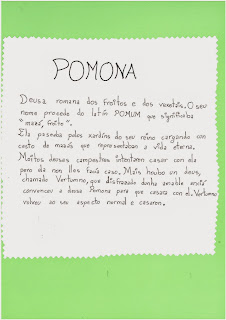 POMONA
Deusa romana dos froitos e dos vexetais. O seu
nome procede do latín POMUM que significaba
"mazá, froito".
Ela paseaba polos xardíns do seu reino cargando con
cesto de mazás que representaban a vida eterna.
Moitos deuses campestres intentaron casar con ela
pero ela non lles facía caso. Mais houbo un deus,
chamado Vertumno, que disfrazado dunha amable anciá
convenceu a deusa Pomona para que casara con el. Vertumno
volveu ao seu aspecto normal e casaron.